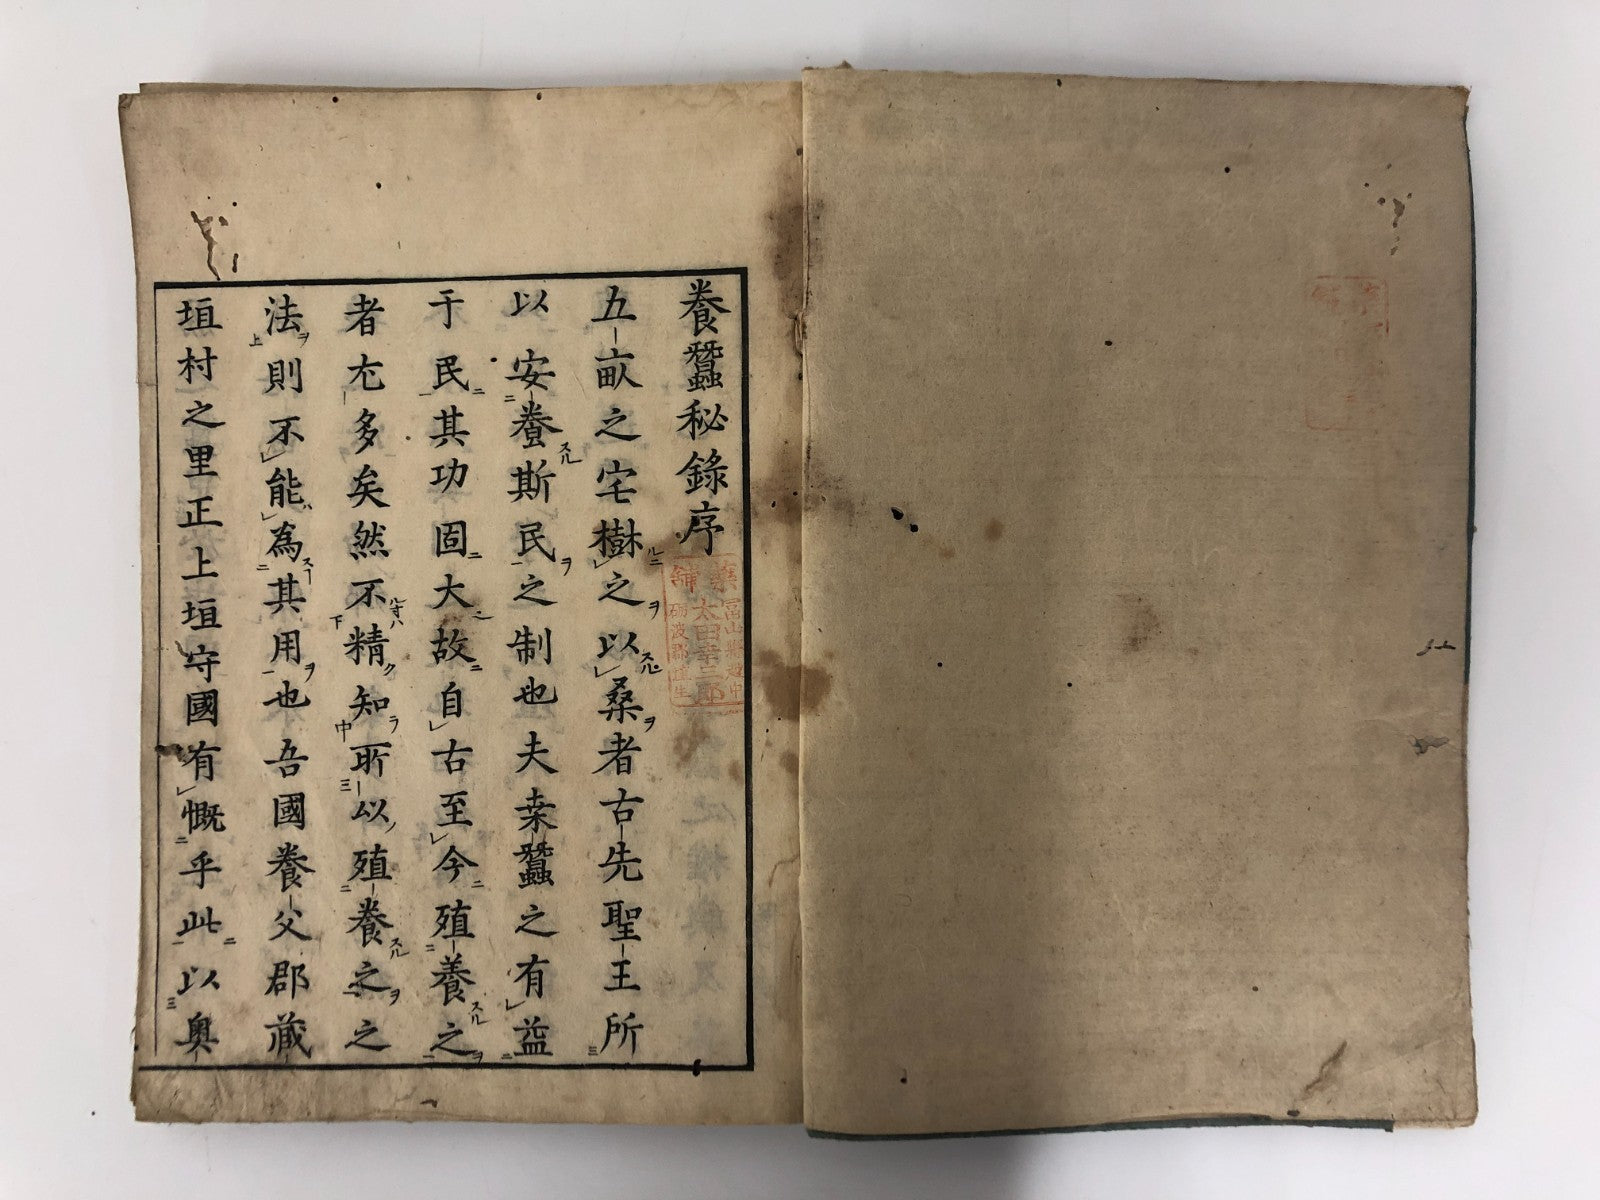 養蠶秘錄序
五畝之宅樹之以桑者古先聖王所
以安養斯民之制也夫桒蠶之有益
于民其功固大故自古至今殖養之
者尤多矣然不精知所以殖養之之
法則不能為其用也吾國養父郡蔵
垣村之里正上垣守國有慨乎此以奧
藥舖
冨山縣越中
太田幸二郎
砺波郡埴生